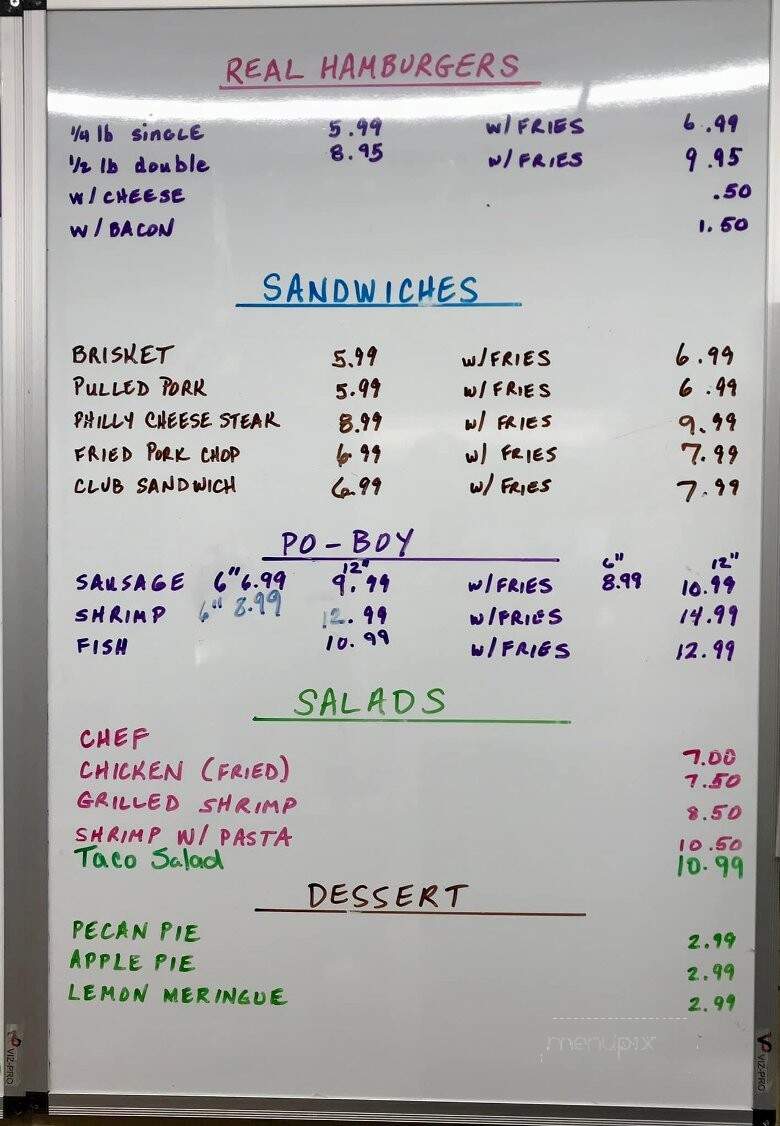 REAL HAMBURGERS
1/4 lb single 5.99 W/FRIES 6.99
1/2 lb double 8.95 W/FRIES 9.95
W/CHEESE .50
W/BACON 1.50
SANDWICHES
BRISKET 5.99 W/FRIES 6.99
PULLED PORK 5.99 W/FRIES 6.99
PHILLY CHEESE STEAK 8.99 W/ FRIES 9.99
FRIED PORK CHOP 6.99 W/ FRIES 7.99
CLUB SANDWICH 6.99 W/ FRIES 7.99
PO-BOY
12" 6" 12"
SAUSAGE 6" 6.99 9.99 W/FRIES 8.99 10.99
SHRIMP 6" 8.99 12.99 W/FRIES 14.99
FISH 10.99 W/FRIES 12.99
SALADS
CHEF 7.00
CHICKEN (FRIED) 7.50
GRILLED SHRIMP 8.50
SHRIMP W/ PASTA 10.50
Taco Salad 10.99
DESSERT
PECAN PIE 2.99
APPLE PIE 2.99
LEMON MERINGUE 2.99
menupix
VIZ-PRO
VIZ-PRO